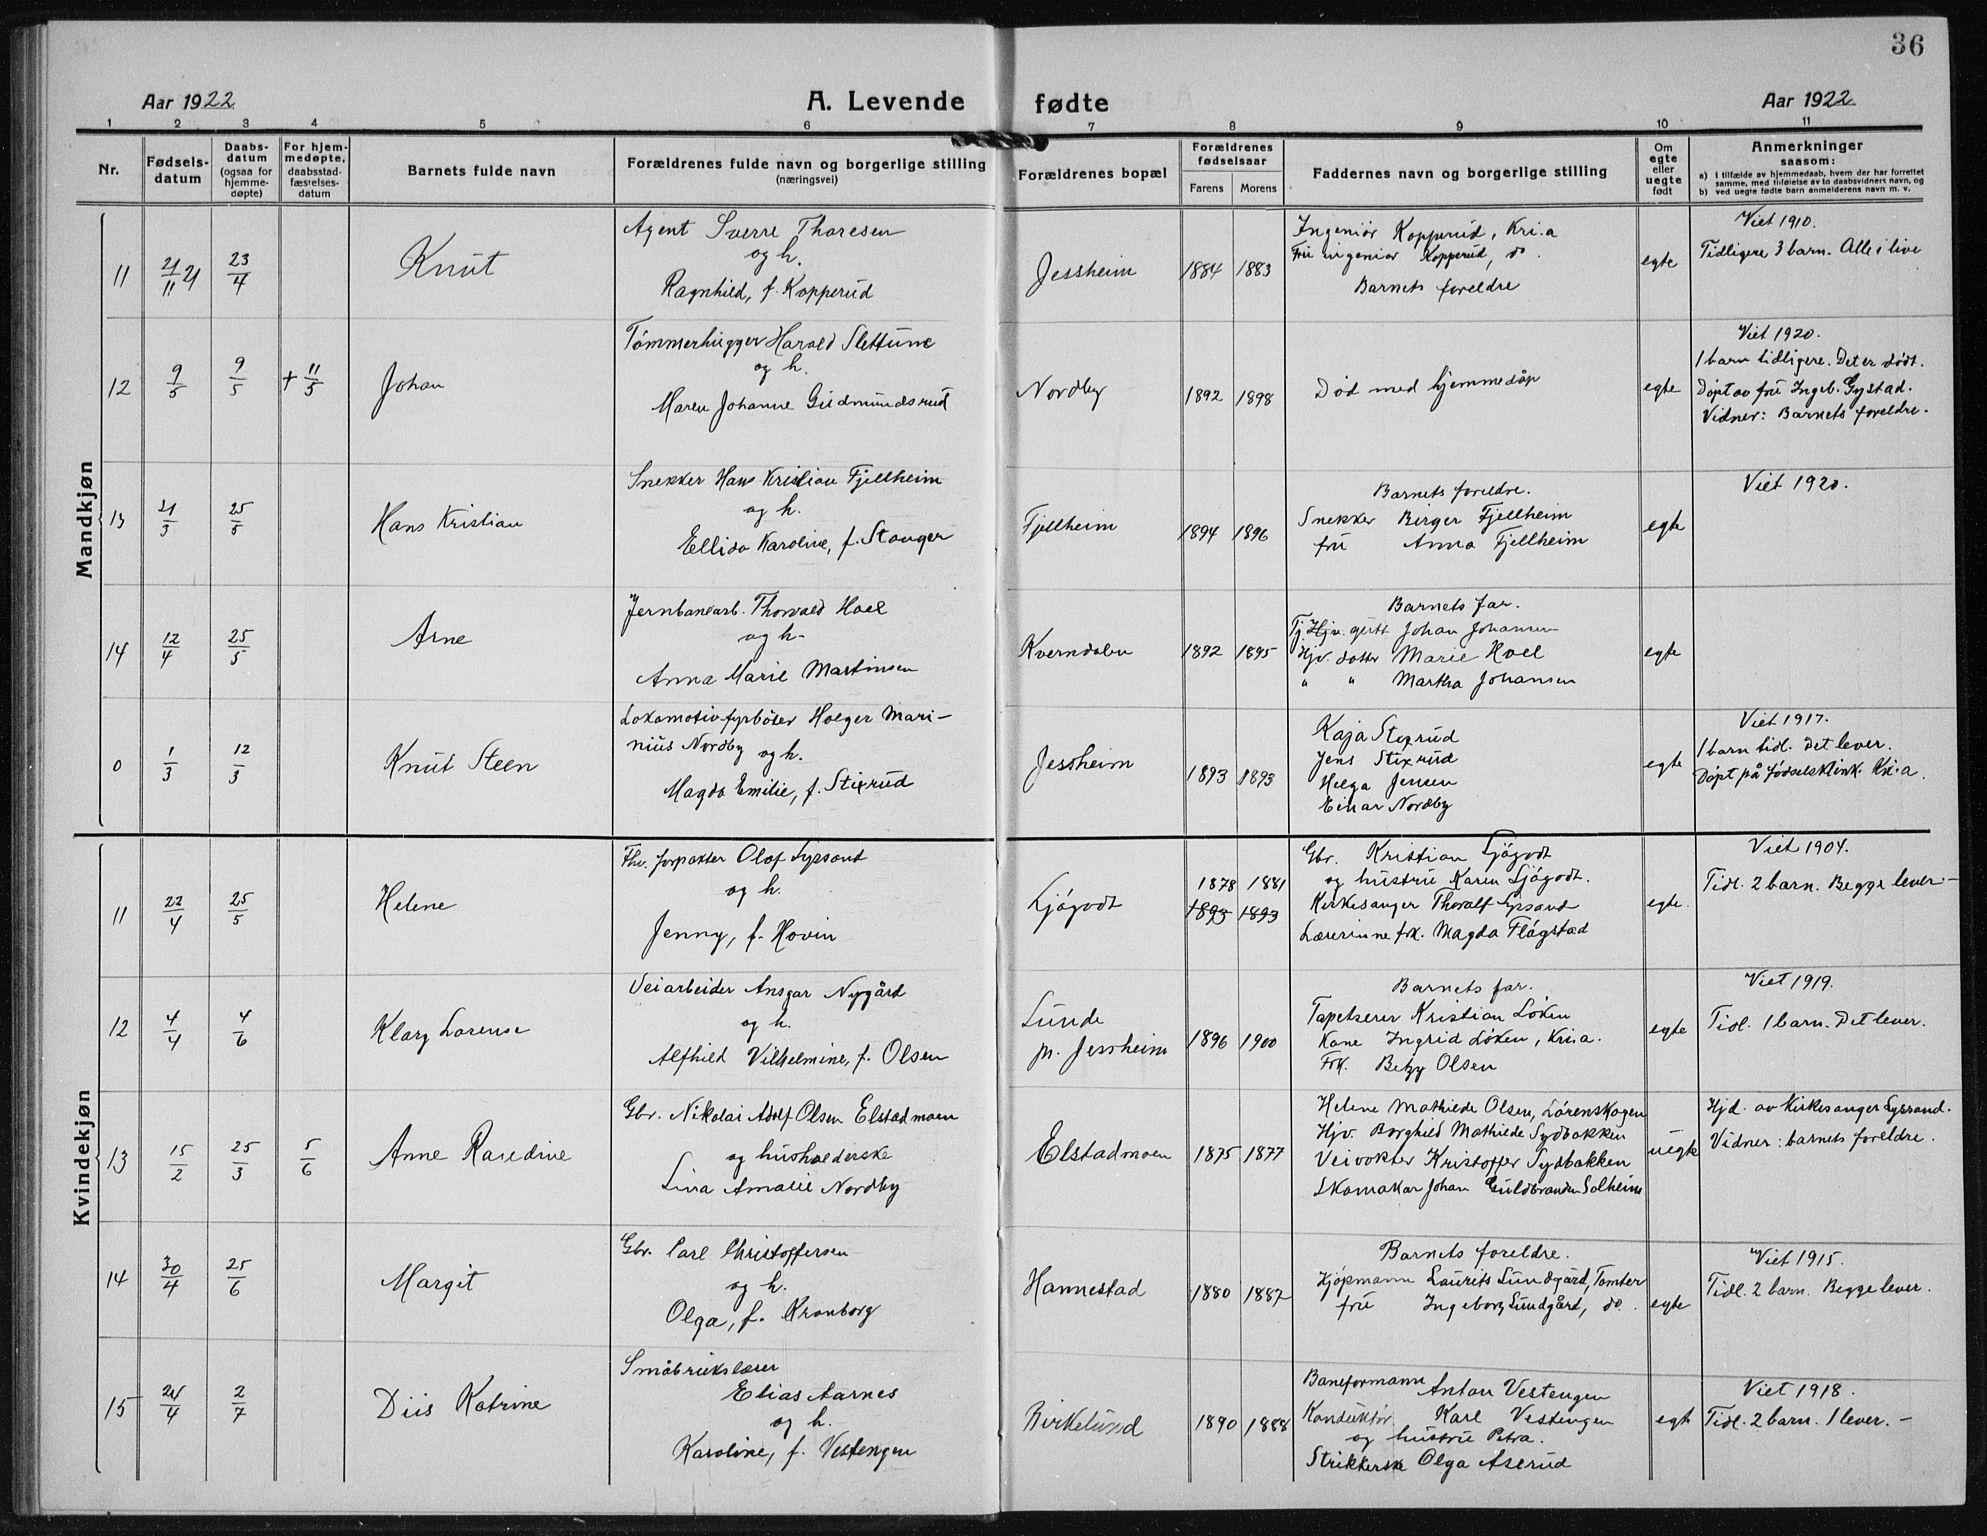 36
Aar 1922
A. Levende fødte
Aar 1922
1 2 3 4 5 6 7 8 9 10 11
Nr.
Fødsels-
datum
Daabs-
datum
(ogsaa for
hjemme-
døpte)
For hjem-
medøpte,
daabsstad-
fæstelses-
datum
Barnets fulde navn
Forældrenes fulde navn og borgerlige stilling
(næringsvei)
Forældrenes bopæl
Forældrenes
fødselsaar
Farens Morens
Faddernes navn og borgerlige stilling
Om
egte
eller
uegte
født
Anmerkninger
saasom:
a) I tilfælde av hjemmedaab, hvem der har forrettet
samme, med tilføielse av to daabsvidners navn, og
b) ved uegte fødte barn anmelderens navn m. v.
Mandkjøn
11
21/11 21
23/4
Knut
Agent Sverre Thoresen
og h.
Ragnhild, f. Kopperud
Jessheim
1884 1883
Ingeniør Kopperud, Kri.a
Fru ingeniør Kopperud, do.
Barnets foreldre
egte
Viet 1910.
Tidligere 3 barn. Alle i live
12
9/5
9/5
+ 11/5
Johan
Tømmerhugger Harald Slettune
og h.
Maren Johanne Gudmundsrud
Nordby
1892 1898
Død med hjemmedåp
egte
Viet 1920.
1 barn tidligere. Det er dødt.
Døpt av fru Ingeb. Gystad.
Vidner: Barnets foreldre.
13
21/3
25/5
Hans Kristian
Snekker Hans Kristian Fjellheim
og h.
Ellida Karoline, f. Stanger
Fjellheim
1894 1896
Barnets foreldre.
Snekker Birger Fjellheim
fru Anna Fjellheim
egte
Viet 1920.
14
12/4
25/5
Arne
Jernbanearb. Thorvald Hoel
og h.
Anna Marie Martinsen
Kverndalen
1892 1895
Barnets far.
Tj. Hjv. gutt Johan Johansen
Hjv. datter Marie Hoel
" " Martha Johansen
egte
0
1/3
12/3
Knut Steen
Lokomotivfyrbøter Holger Mari-
nius Nordby og h.
Magda Emilie, f. Stixrud
Jessheim
1893 1893
Kaja Stixrud
Jens Stixrud
Helga Jensen
Einar Nordby
egte
Viet 1917.
1 barn tidl. Det lever.
Døpt på Fødselsklink. Kri.a.
Kvindekjøn
11
22/4
25/5
Helene
Fhv. forpakter Olaf Lyssand
og h.
Jenny, f. Hovin
Ljøgodt
1878 1881
1893 1893
Gbr. Kristian Ljøgodt
og hustru Karen Ljøgodt.
Kirkesanger Thoralf Lyssand
Lærerinne frk. Magda Fløgstad
egte.
Viet 1904.
Tidl. 2 barn. Begge lever.-
12
4/4
4/6
Klary Lorense
Veiarbeider Ansgar Nygård
og h.
Alfhild Vilhelmine, f. Olsen
Lunde
p. Jessheim
1896 1900
Barnets far.
Tapetserer Kristian Løken
Kone Ingrid Løken, Kri.a.
Frk. Betzy Olsen
egte
Viet 1919.
Tidl. 1 barn. Det lever.
13
15/2
25/3
5/6
Anne Randine
Gbr. Nikolai Adolf Olsen Elstadmoen
og husholderske
Lina Amalie Nordby
Elstadmoen
1875 1877
Helene Mathilde Olsen, Lørenskogen
Hjv. Borghild Mathilde Sydbakken
Veivokter Kristoffer Sydbakken
Skomaker Johan Guldbrandsen Solheim
uegte
Hjd. av Kirkesanger Lyssand.
Vidner: barnets foreldre.
14
30/4
25/6
Margit
Gbr. Carl Christoffersen
og h.
Olga, f. Kronborg
Hannestad
1880 1887
Barnets foreldre.
Kjøpmann Laurits Lundgård, Tomter
fru Ingeborg Lundgård, do.
egte
Viet 1915.
Tidl. 2 barn. Begge lever.
15
24/4
2/7
Diis Katrine
Småbrukslærer
Elias Aarnes
og h.
Karoline, f. Vestengen
Birkelund
1890 1888
Baneformann Anton Vestengen
Konduktør Karl Vestengen
og hustru Petra.
Strikkerske Olga Aserud
egte
Viet 1918.
Tidl. 2 barn. 1 lever. -